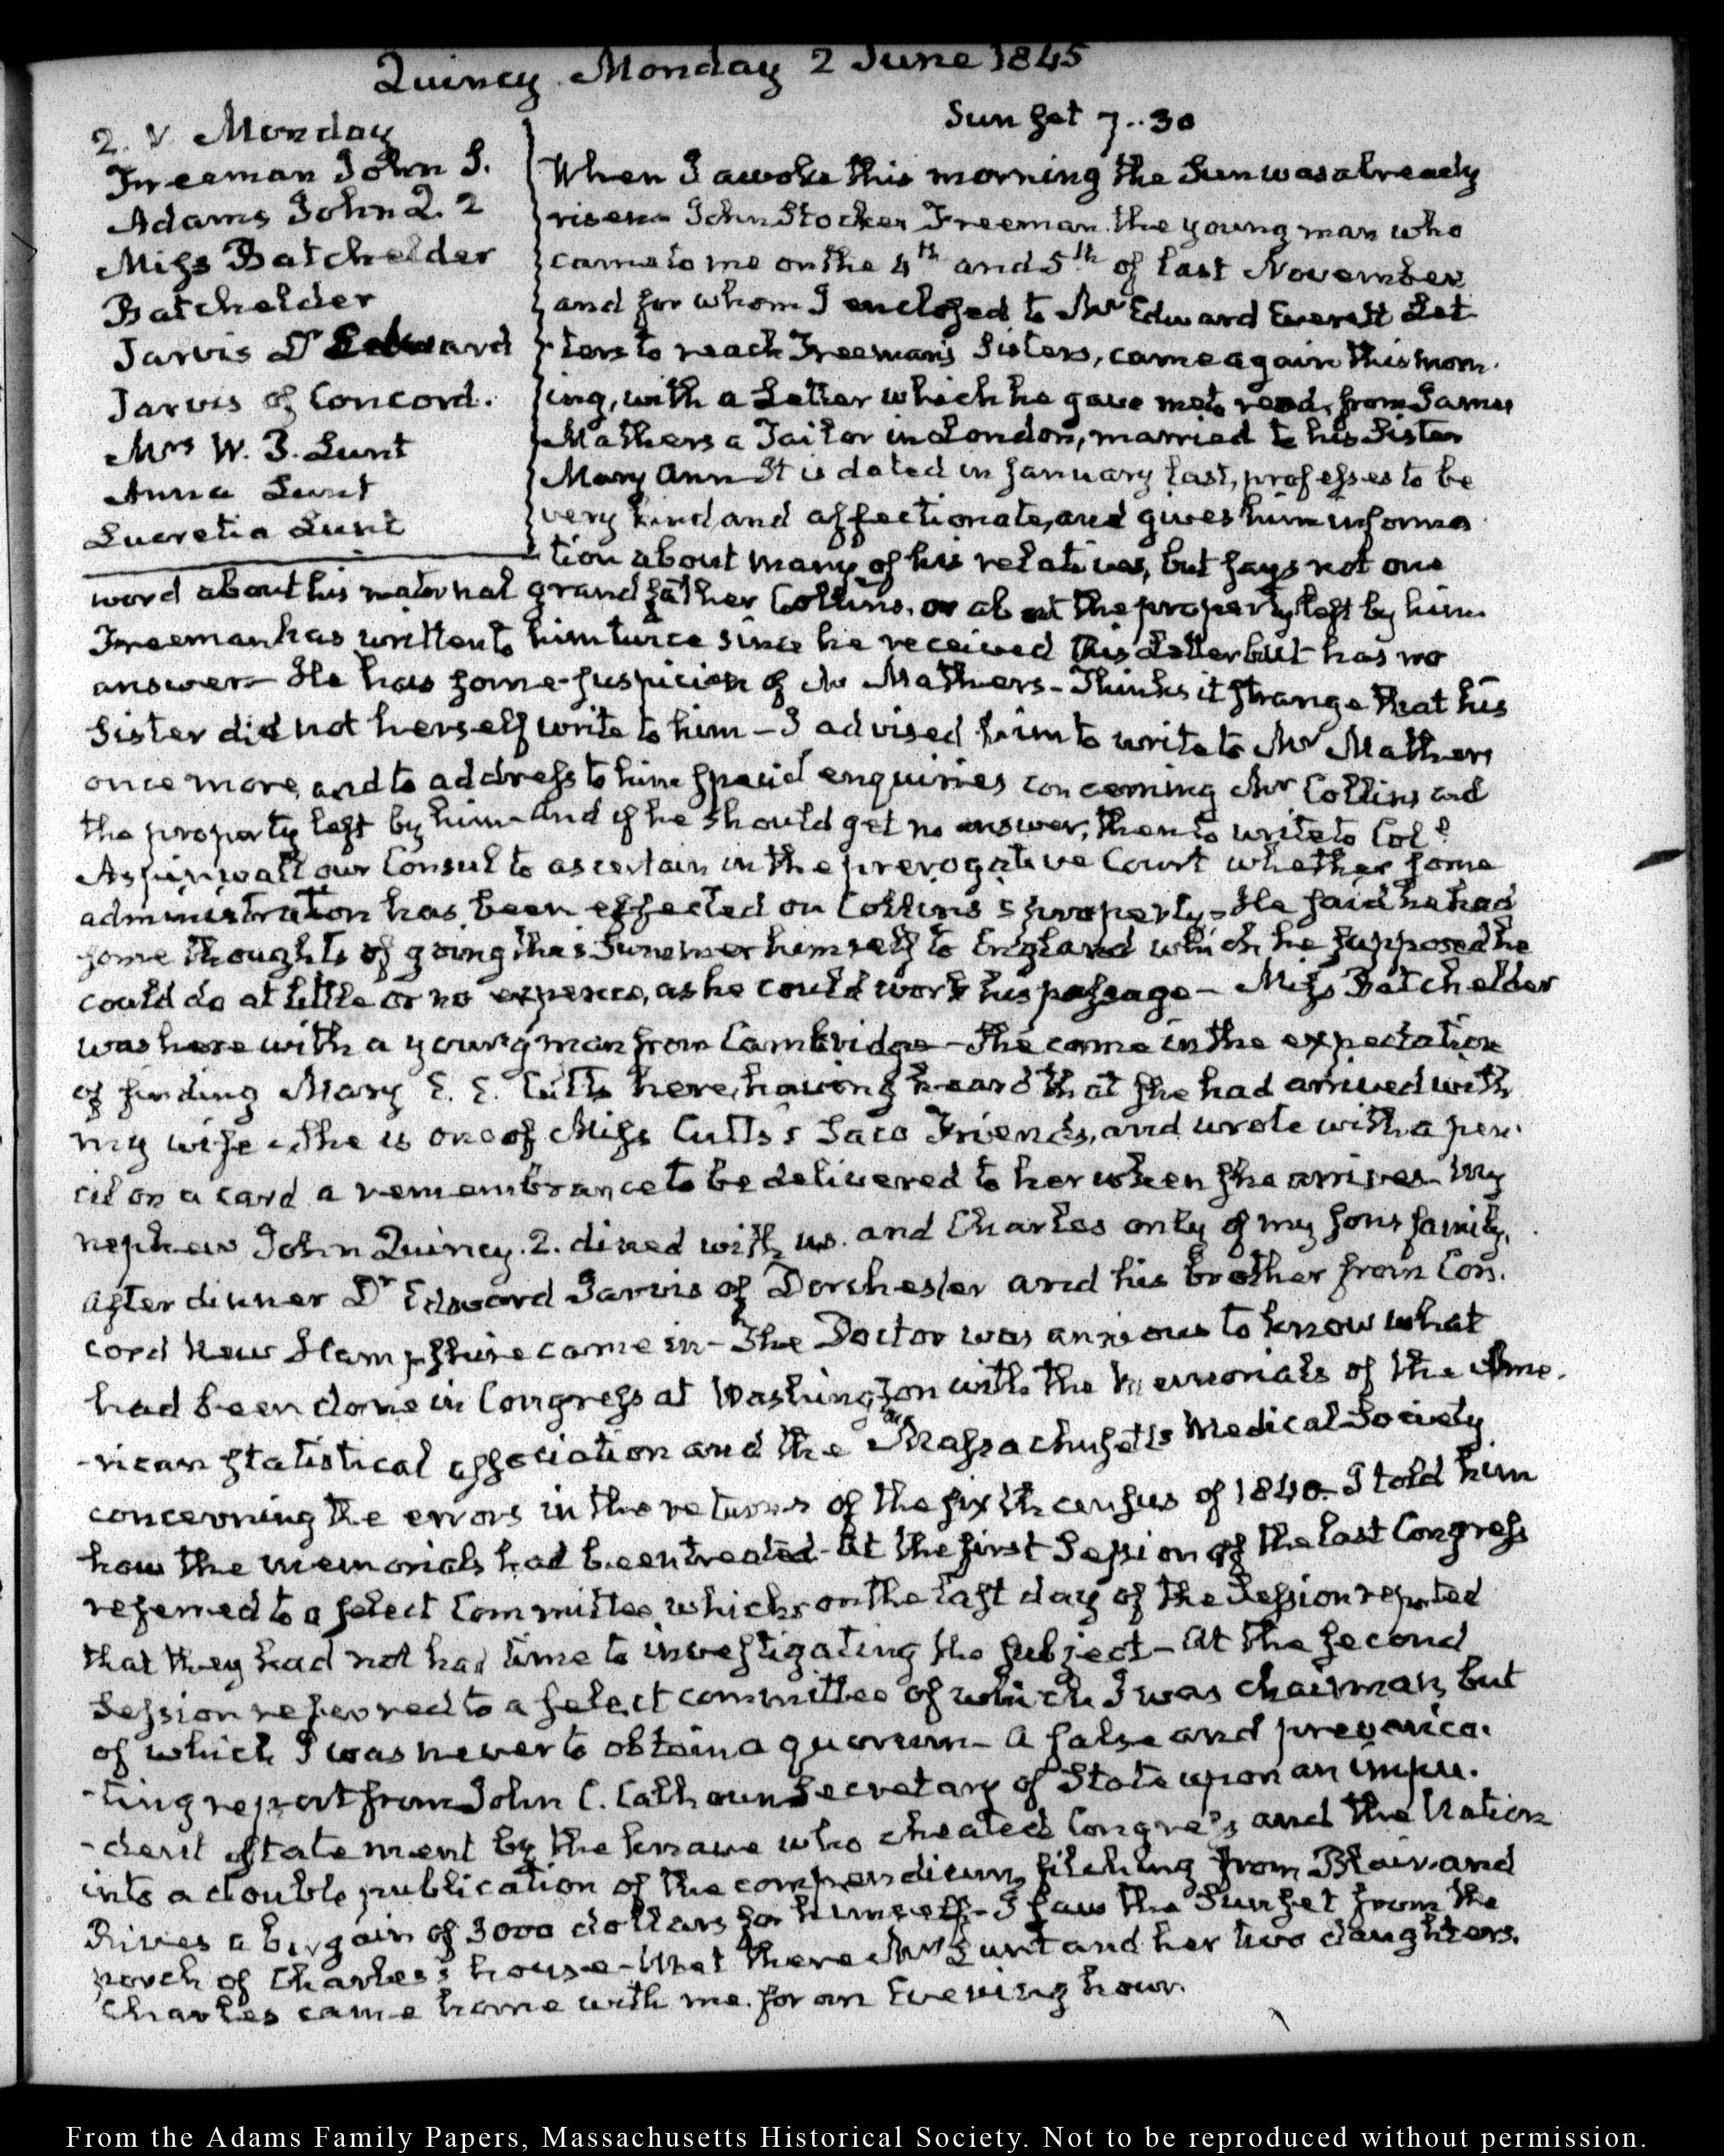 Quincy Monday 2 June 1845
Sun set 7..30
2. V. Monday
Freeman John S.
Adams John Q. 2
Miss Batchelder
Batchelder
Jarvis Dr Edward
Jarvis of Concord.
Mrs W. P. Lunt
Anna Lunt
Lucretia Lunt
When I awoke this morning the Sun was already
risen— John Stocker Freeman. the young man who
came to me on the 4th and 5th of last November
and for whom I enclosed to Mr Edward Everett Let-
ters to reach Freeman's Sisters, came again this morn-
ing, with a Letter which he gave me to read, from James
Mathers a Tailor in London, married to his Sister
Mary Ann— It is dated in January last, professes to be
very kind and affectionate, and gives him informa-
tion about many of his relatives, but says not one
word about his maternal grandfather Collins, or about the property left by him
Freeman has written to him twice since he received this Letter but has no
answer— He has some suspicion of Mr Mathers— Thinks it strange that his
Sister did not herself write to him— I advised him to write to Mr Mathers
once more, and to address to him special enquiries concerning Mr Collins and
the property left by him— And if he should get no answer, then to write to Coll
Aspinwall our Consul to ascertain in the prerogative Court whether some
administration has been effected on Collins's property— He said he had
some thoughts of going this Summer himself to England which he supposed he
could do at little or no expence, as he could work his passage— Miss Batchelder
was here with a young man from Cambridge— She came in the expectation
of finding Mary E. E. Cutts here, having heard that she had arrived with
my wife— She is one of Miss Cutts's Saco Friends, and wrote with a pen-
cil on a card a remembrance to be delivered to her when she arrives. My
nephew John Quincy. 2. dined with us. and Charles only of my sons family.
After dinner Dr Edward Jarvis of Dorchester and his brother from Con-
cord New Hampshire came in— The Doctor was anxious to know what
had been done in Congress at Washington with the memorials of the Ame-
-rican statistical association and the Massachusetts Medical Society
concerning the errors in the returns of the sixth census of 1840— I told him
how the memorials had been treated— At the first Session of the last Congress
referred to a select Committee which on the last day of the Session reported
that they had not had time to investigating the subject— At the second
Session referred to a select committee of which I was chairman, but
of which I was never to obtain a quorum— A false and prevarica-
-ting report from John C. Calhoun Secretary of State upon an impu-
-dent statement by the knave who cheated Congress and the Nation
into a double publication of the compendium, filching from Blair and
Rives a bargain of 3000 dollars for himself— I saw the Sun set from the
porch of Charles's house— Met there Mrs Lunt and her two daughters.
Charles came home with me for an Evening hour.
From the Adams Family Papers, Massachusetts Historical Society. Not to be reproduced without permission.